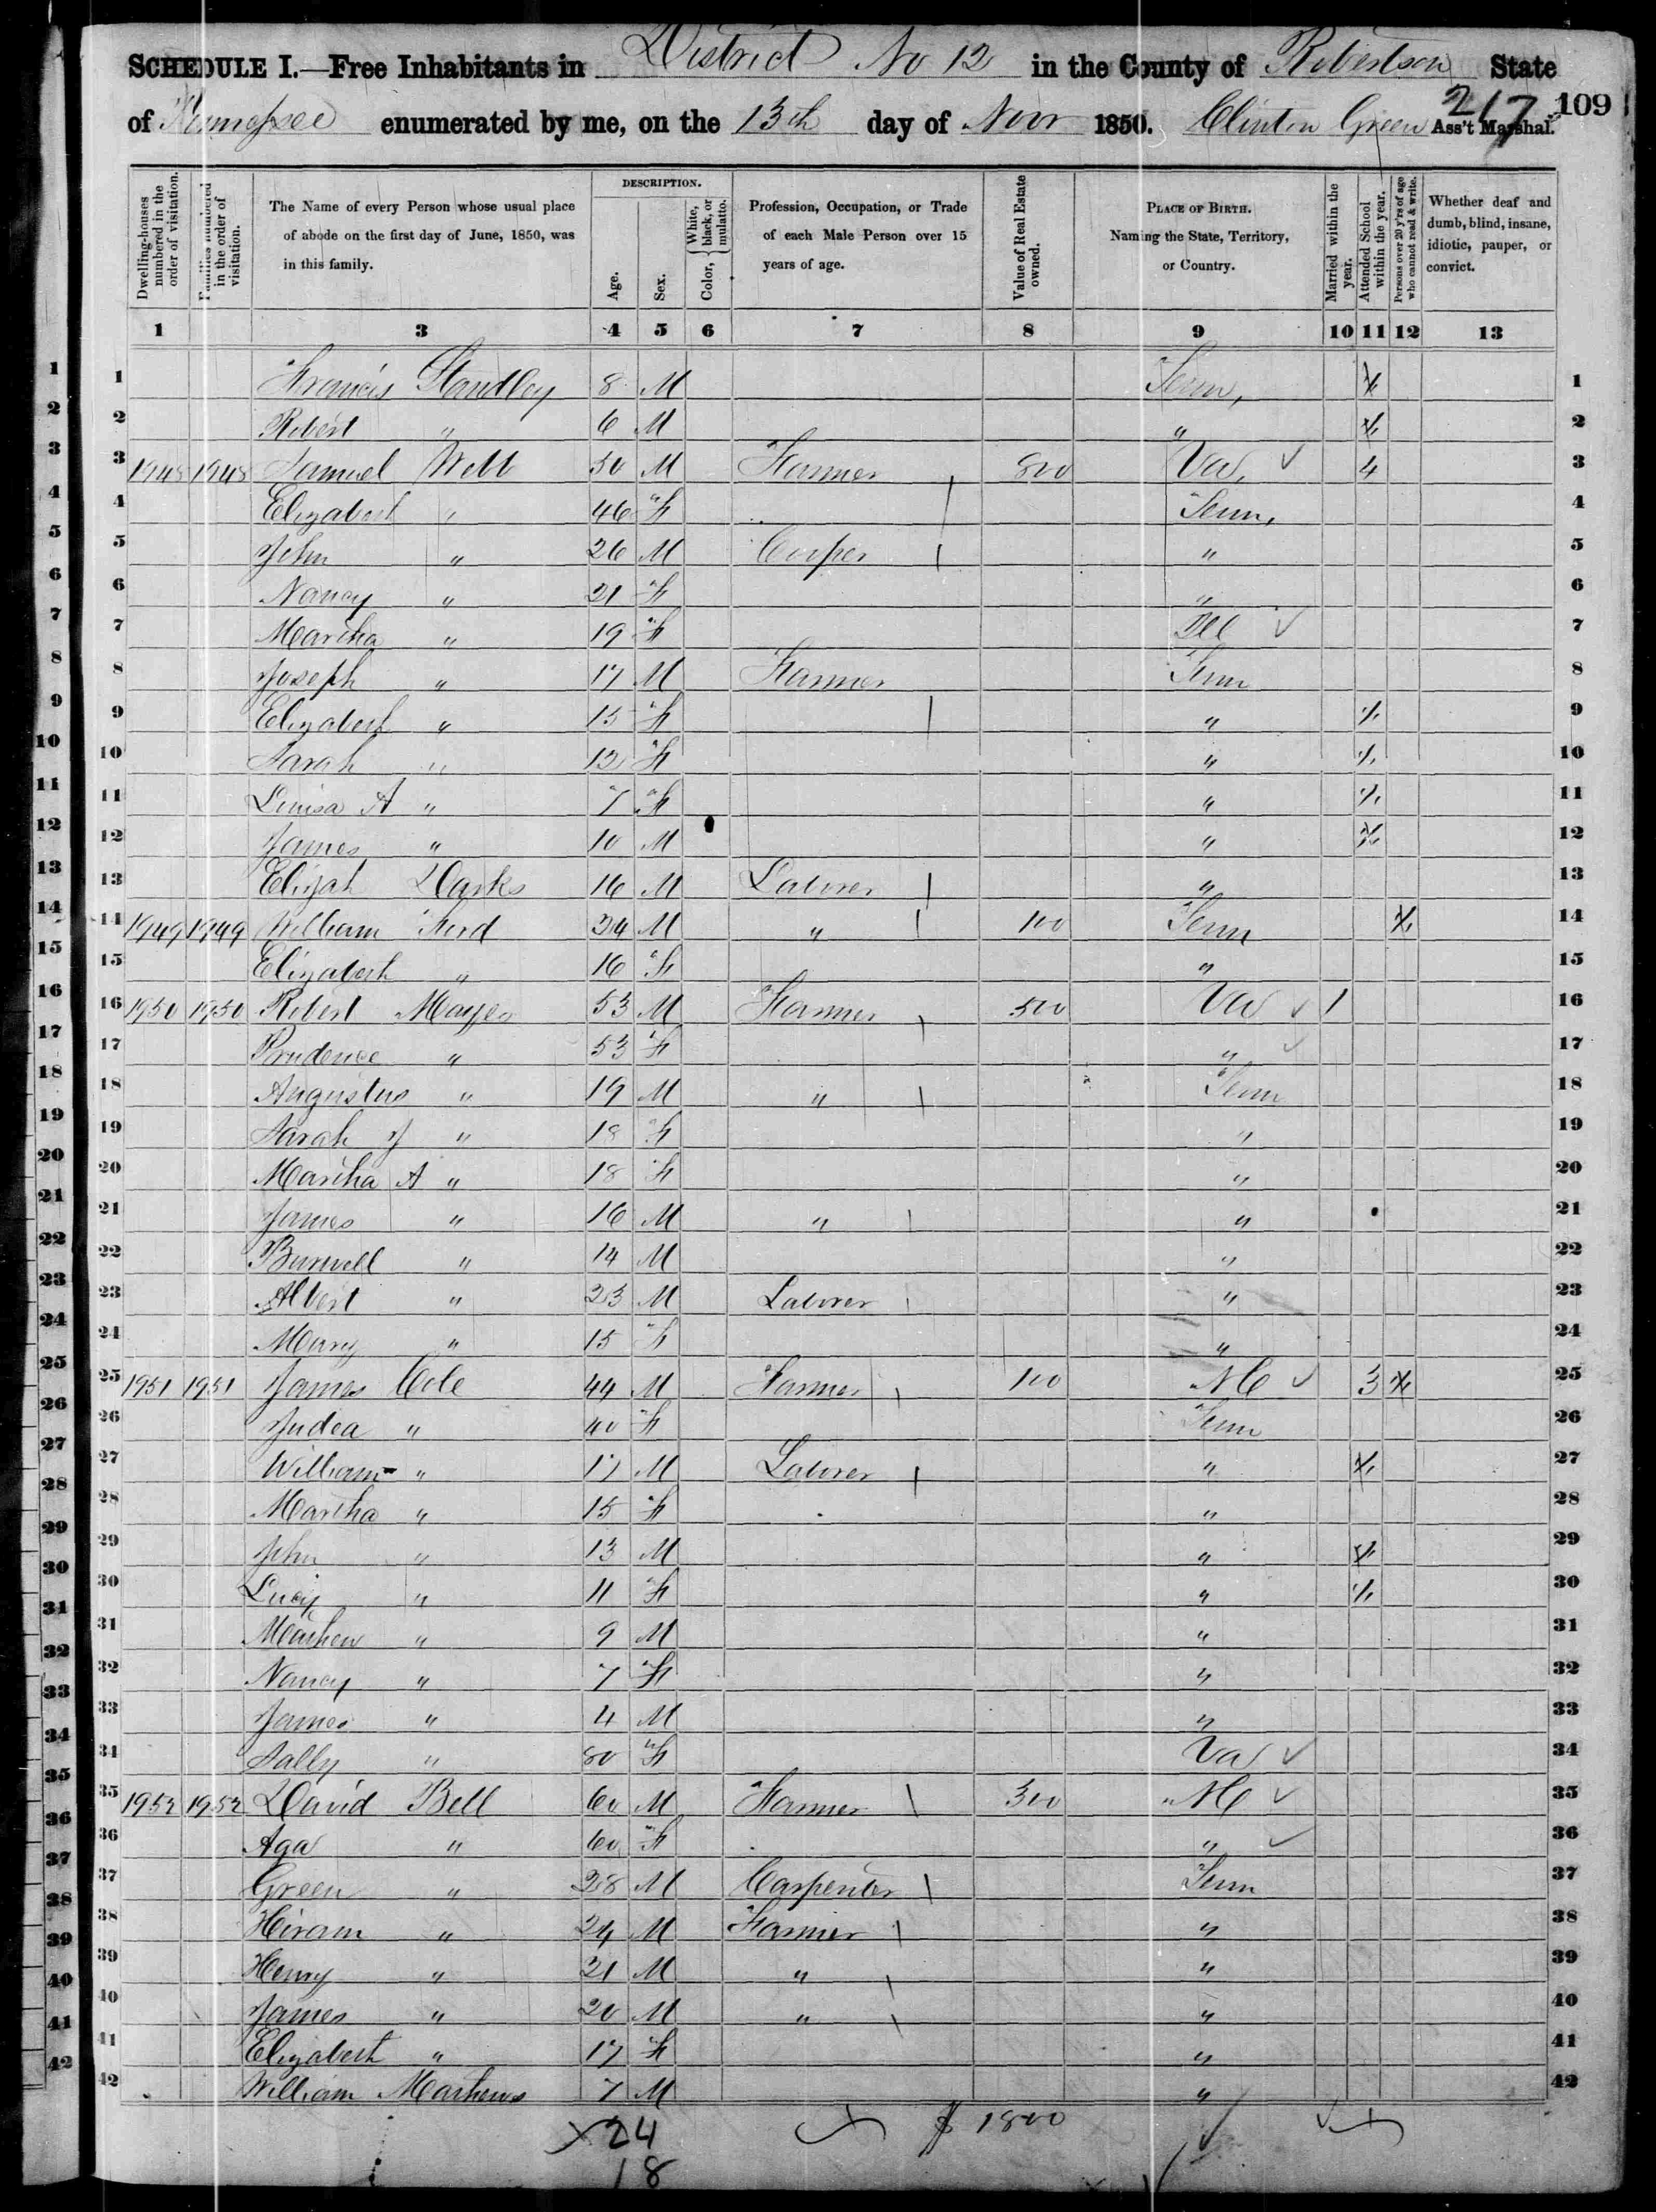 SCHEDULE I.—Free Inhabitants in District No 12 in the County of Robertson State
of Tennessee enumerated by me, on the 13th day of Nov 1850. Clinton Green Ass't Marshal. 217 109
Dwelling-houses numbered in the order of visitation.
Families numbered in the order of visitation.
The Name of every Person whose usual place of abode on the first day of June, 1850, was in this family.
DESCRIPTION.
Age.
Sex.
Color, White, black, or mulatto.
Profession, Occupation, or Trade of each Male Person over 15 years of age.
Value of Real Estate owned.
PLACE OF BIRTH. Naming the State, Territory, or Country.
Married within the year.
Attended School within the year.
Persons over 20 y'rs of age who cannot read & write.
Whether deaf and dumb, blind, insane, idiotic, pauper, or convict.
1 3 4 5 6 7 8 9 10 11 12 13
1 Francis Standley 8 M Tenn, 1
2 Robert " 6 M " 2
3 1948 1948 Samuel Webb 50 M Farmer 800 Va, 4 3
4 Elizabeth " 46 F Tenn, 4
5 John " 26 M Cooper " 5
6 Nancy " 21 F " 6
7 Martha " 19 F Ill 7
8 Joseph " 17 M Farmer Tenn 8
9 Elizabeth " 15 F " 9
10 Sarah " 12 F " 10
11 Louisa A " 7 F " 11
12 James " 10 M " 12
13 Elijah Darks 16 M Laborer " 13
14 1949 1949 William Ford 34 M " 100 Tenn 14
15 Elizabeth " 16 F " 15
16 1950 1950 Robert Mayes 53 M Farmer 500 Va 1 16
17 Prudence " 53 F " 17
18 Augustus " 19 M " Tenn 18
19 Sarah J " 18 F " 19
20 Martha A " 18 F " 20
21 James " 16 M " " 21
22 Burwell " 14 M " 22
23 Albert " 23 M Laborer " 23
24 Mary " 15 F " 24
25 1951 1951 James Cole 44 M Farmer 100 NC 3 25
26 Judea " 40 F Tenn 26
27 William " 17 M Laborer " 27
28 Martha " 15 F " 28
29 John " 13 M " 29
30 Lucy " 11 F " 30
31 Mathew " 9 M " 31
32 Nancy " 7 F " 32
33 James " 4 M " 33
34 Sally " 80 F Va 34
35 1952 1952 David Bell 60 M Farmer 300 NC 35
36 Aga " 60 F " 36
37 Green " 28 M Carpenter Tenn 37
38 Hiram " 24 M Farmer " 38
39 Henry " 21 M " " 39
40 James " 20 M " " 40
41 Elizabeth " 17 F " 41
42 William Mathews 7 M " 42
24 $ 1800
18